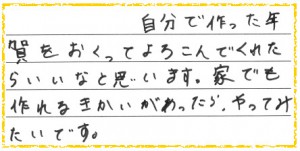 自分で作った年
賀をおくってよろこんでくれた
らいいなと思います。家でも
作れるきかいがあったら、やってみ
たいです。